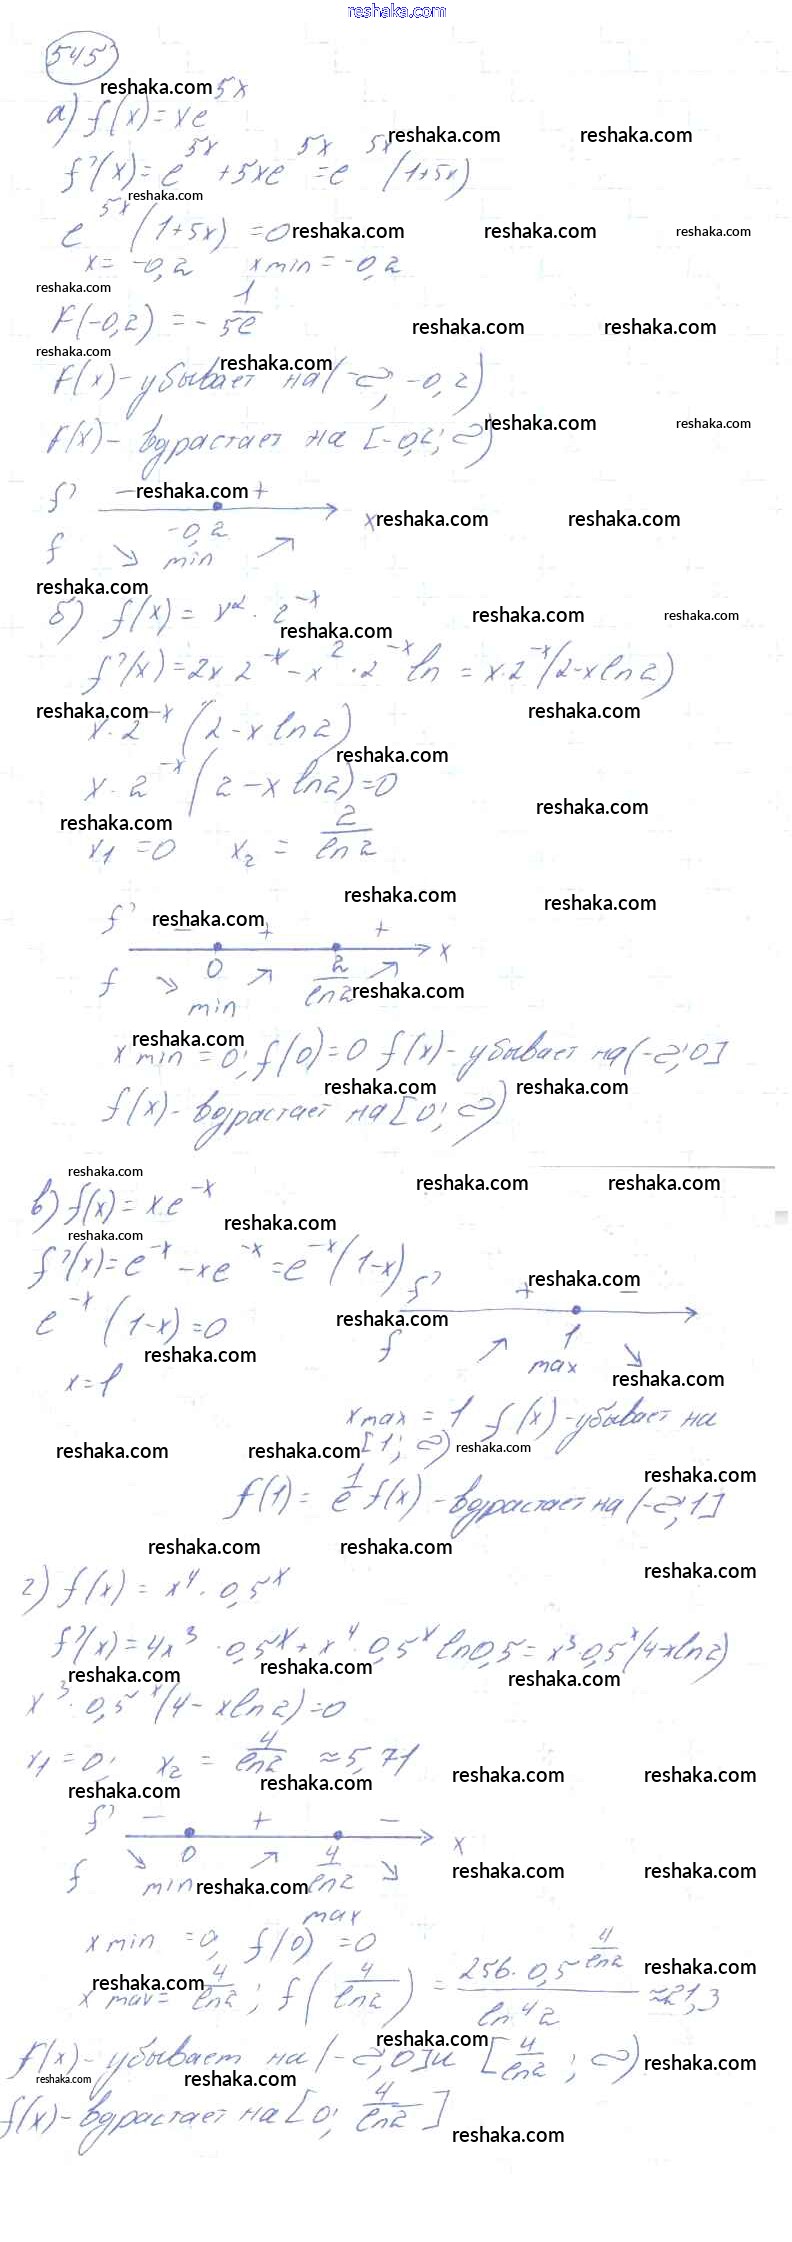 reshaka.com
545
reshaka.com
а) f(x) = xe^5x
reshaka.com reshaka.com
f'(x) = e^5x + 5xe^5x = e^5x (1+5x)
reshaka.com
e^5x (1+5x) = 0
reshaka.com reshaka.com reshaka.com
x = -0,2 x min = -0,2
reshaka.com
F(-0,2) = - 1/5e
reshaka.com reshaka.com
reshaka.com reshaka.com
F(x) - убывает на (-∞; -0,2)
reshaka.com reshaka.com
F(x) - вдрастает на [-0,2; ∞)
f' - reshaka.com +
-0,2 x reshaka.com reshaka.com
f ↘ min ↗
reshaka.com
б) f(x) = x² · 2^-x
reshaka.com reshaka.com
reshaka.com
f'(x) = 2x 2^-x - x² · 2^-x ln = x·2^-x (2-x ln2)
reshaka.com reshaka.com
x · 2^-x (2 - x ln2)
reshaka.com
x · 2^-x (2 - x ln2) = 0
reshaka.com
reshaka.com
x₁ = 0 x₂ = 2/ln2
reshaka.com reshaka.com
f' - reshaka.com + +
0 2/ln2 x
f ↘ min ↗ ↗
reshaka.com
reshaka.com
x min = 0; f(0) = 0 f(x) - убывает на (-∞; 0]
reshaka.com reshaka.com
f(x) - вдрастает на [0; ∞)
reshaka.com reshaka.com reshaka.com
в) f(x) = x·e^-x
reshaka.com
reshaka.com
f'(x) = e^-x - xe^-x = e^-x (1-x)
f' + - reshaka.com
e^-x (1-x) = 0
reshaka.com
1
f ↗ max ↘
reshaka.com
x = 1
reshaka.com
x max = 1 f(x) - убывает на
[1; ∞)
reshaka.com reshaka.com reshaka.com
reshaka.com
f(1) = 1/e f(x) - вдрастает на (-∞; 1]
reshaka.com reshaka.com
reshaka.com
г) f(x) = x⁴ · 0,5^x
f'(x) = 4x³ · 0,5^x + x⁴ · 0,5^x ln0,5 = x³ 0,5^x (4-xln2)
reshaka.com reshaka.com reshaka.com
x³ · 0,5^x (4 - xln2) = 0
x₁ = 0; x₂ = 4/ln2 ≈ 5,71
reshaka.com reshaka.com reshaka.com reshaka.com
f' - + -
0 4/ln2 x
f ↘ min ↗ max ↘
reshaka.com reshaka.com reshaka.com
x min = 0, f(0) = 0
reshaka.com reshaka.com
x max = 4/ln2; f(4/ln2) = 256·0,5^(4/ln2) / ln⁴2 ≈ 21,3
reshaka.com
f(x) - убывает на (-∞; 0] и [4/ln2; ∞)
reshaka.com
reshaka.com reshaka.com
f(x) - вдрастает на [0; 4/ln2]
reshaka.com